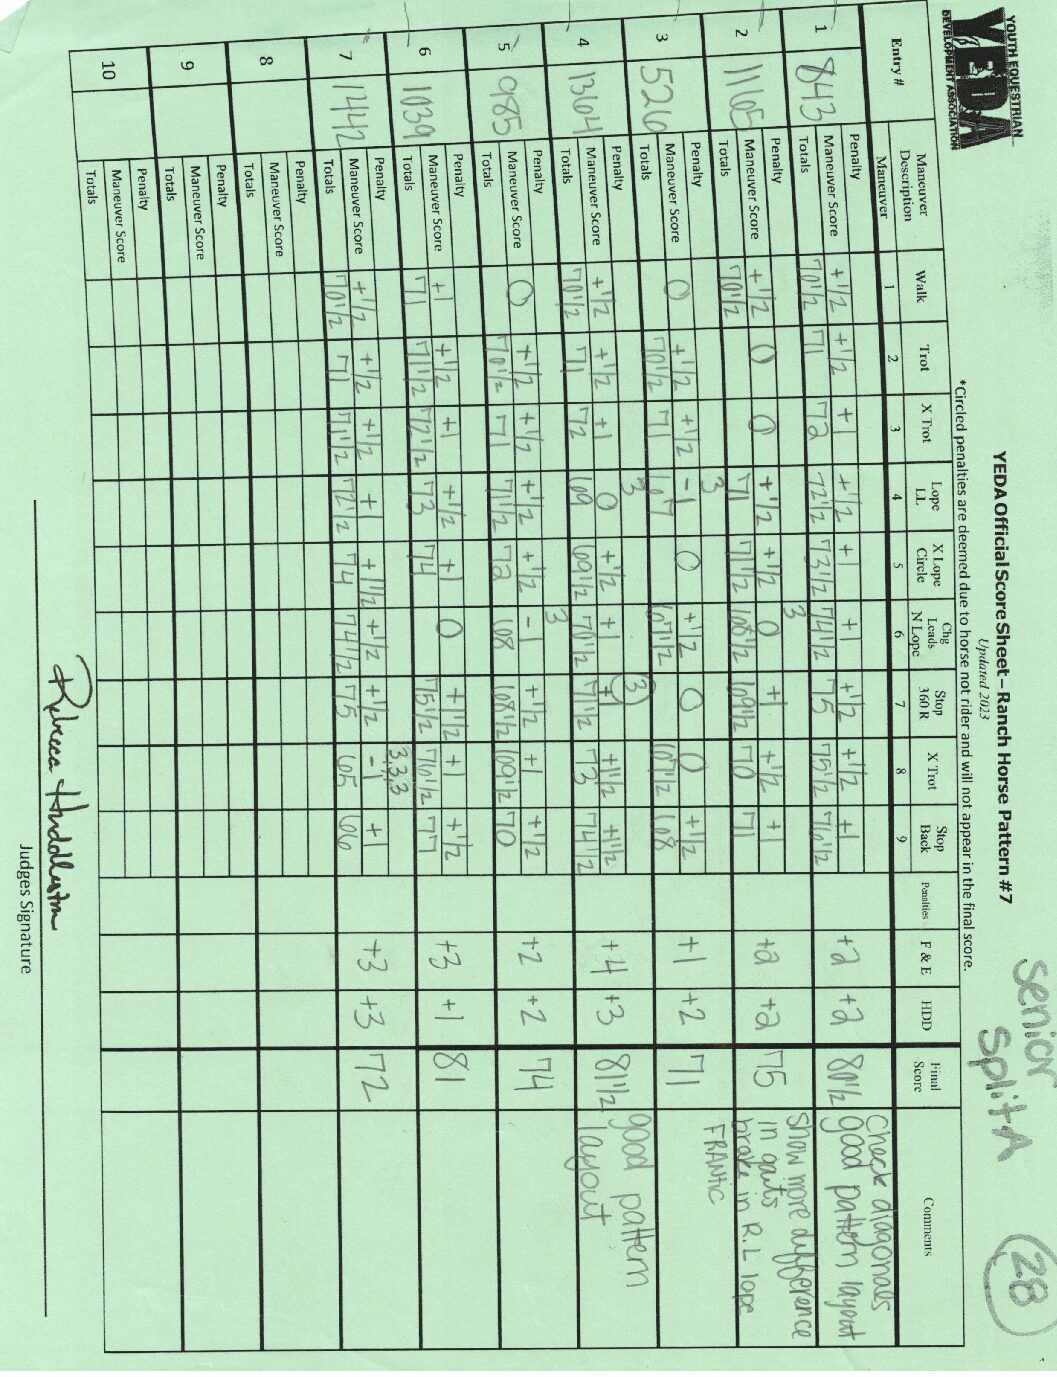 YOUTH EQUESTRIAN
YEDA
DEVELOPMENT ASSOCIATION
Senior
Split A
28
YEDA Official Score Sheet – Ranch Horse Pattern #7
Updated 2023
*Circled penalties are deemed due to horse not rider and will not appear in the final score.
Entry # Maneuver Description Walk Trot X Trot Lope LL X Lope Circle Chg Leads N Lope Stop 360 R X Trot Stop Back Penalties F & E HDD Final Score Comments
Maneuver 1 2 3 4 5 6 7 8 9
1 843 Penalty
Maneuver Score +1/2 +1/2 +1 +1/2 +1 +1 +1/2 +1/2 +1 +2 +2 80 1/2 Check diagonals
Totals 70 1/2 71 72 72 1/2 73 1/2 74 1/2 75 75 1/2 76 1/2 good pattern layout
2 1165 Penalty 3
Maneuver Score +1/2 0 0 +1/2 +1/2 0 +1 +1/2 +1 +2 +2 75 show more difference in gaits
Totals 70 1/2 71 71 1/2 68 1/2 69 1/2 70 71 broke in R. L lope
3 526 Penalty 3
Maneuver Score 0 +1/2 +1/2 -1 0 +1/2 0 0 +1/2 +1 +2 71 FRANTIC
Totals 70 1/2 71 67 67 1/2 67 1/2 68
4 1364 Penalty 3 3
Maneuver Score +1/2 +1/2 +1 0 +1/2 +1 +1 +1 1/2 +1 1/2 +4 +3 81 1/2 good pattern
Totals 70 1/2 71 72 69 69 1/2 70 1/2 71 1/2 73 74 1/2 layout
5 985 Penalty 3
Maneuver Score 0 +1/2 +1/2 +1/2 +1/2 -1 +1/2 +1 +1/2 +2 +2 74
Totals 70 1/2 71 71 1/2 72 68 68 1/2 69 1/2 70
6 1039 Penalty
Maneuver Score +1 +1/2 +1 +1/2 +1 0 +1 1/2 +1 +1/2 +3 +1 81
Totals 71 71 1/2 72 1/2 73 74 75 1/2 76 1/2 77
7 1442 Penalty 3,3,3
Maneuver Score +1/2 +1/2 +1/2 +1 +1 1/2 +1/2 +1/2 -1 +1 +3 +3 72
Totals 70 1/2 71 71 1/2 72 1/2 74 74 1/2 75 65 66
8 Penalty
Maneuver Score
Totals
9 Penalty
Maneuver Score
Totals
10 Penalty
Maneuver Score
Totals
Rebecca Huddleston
Judges Signature